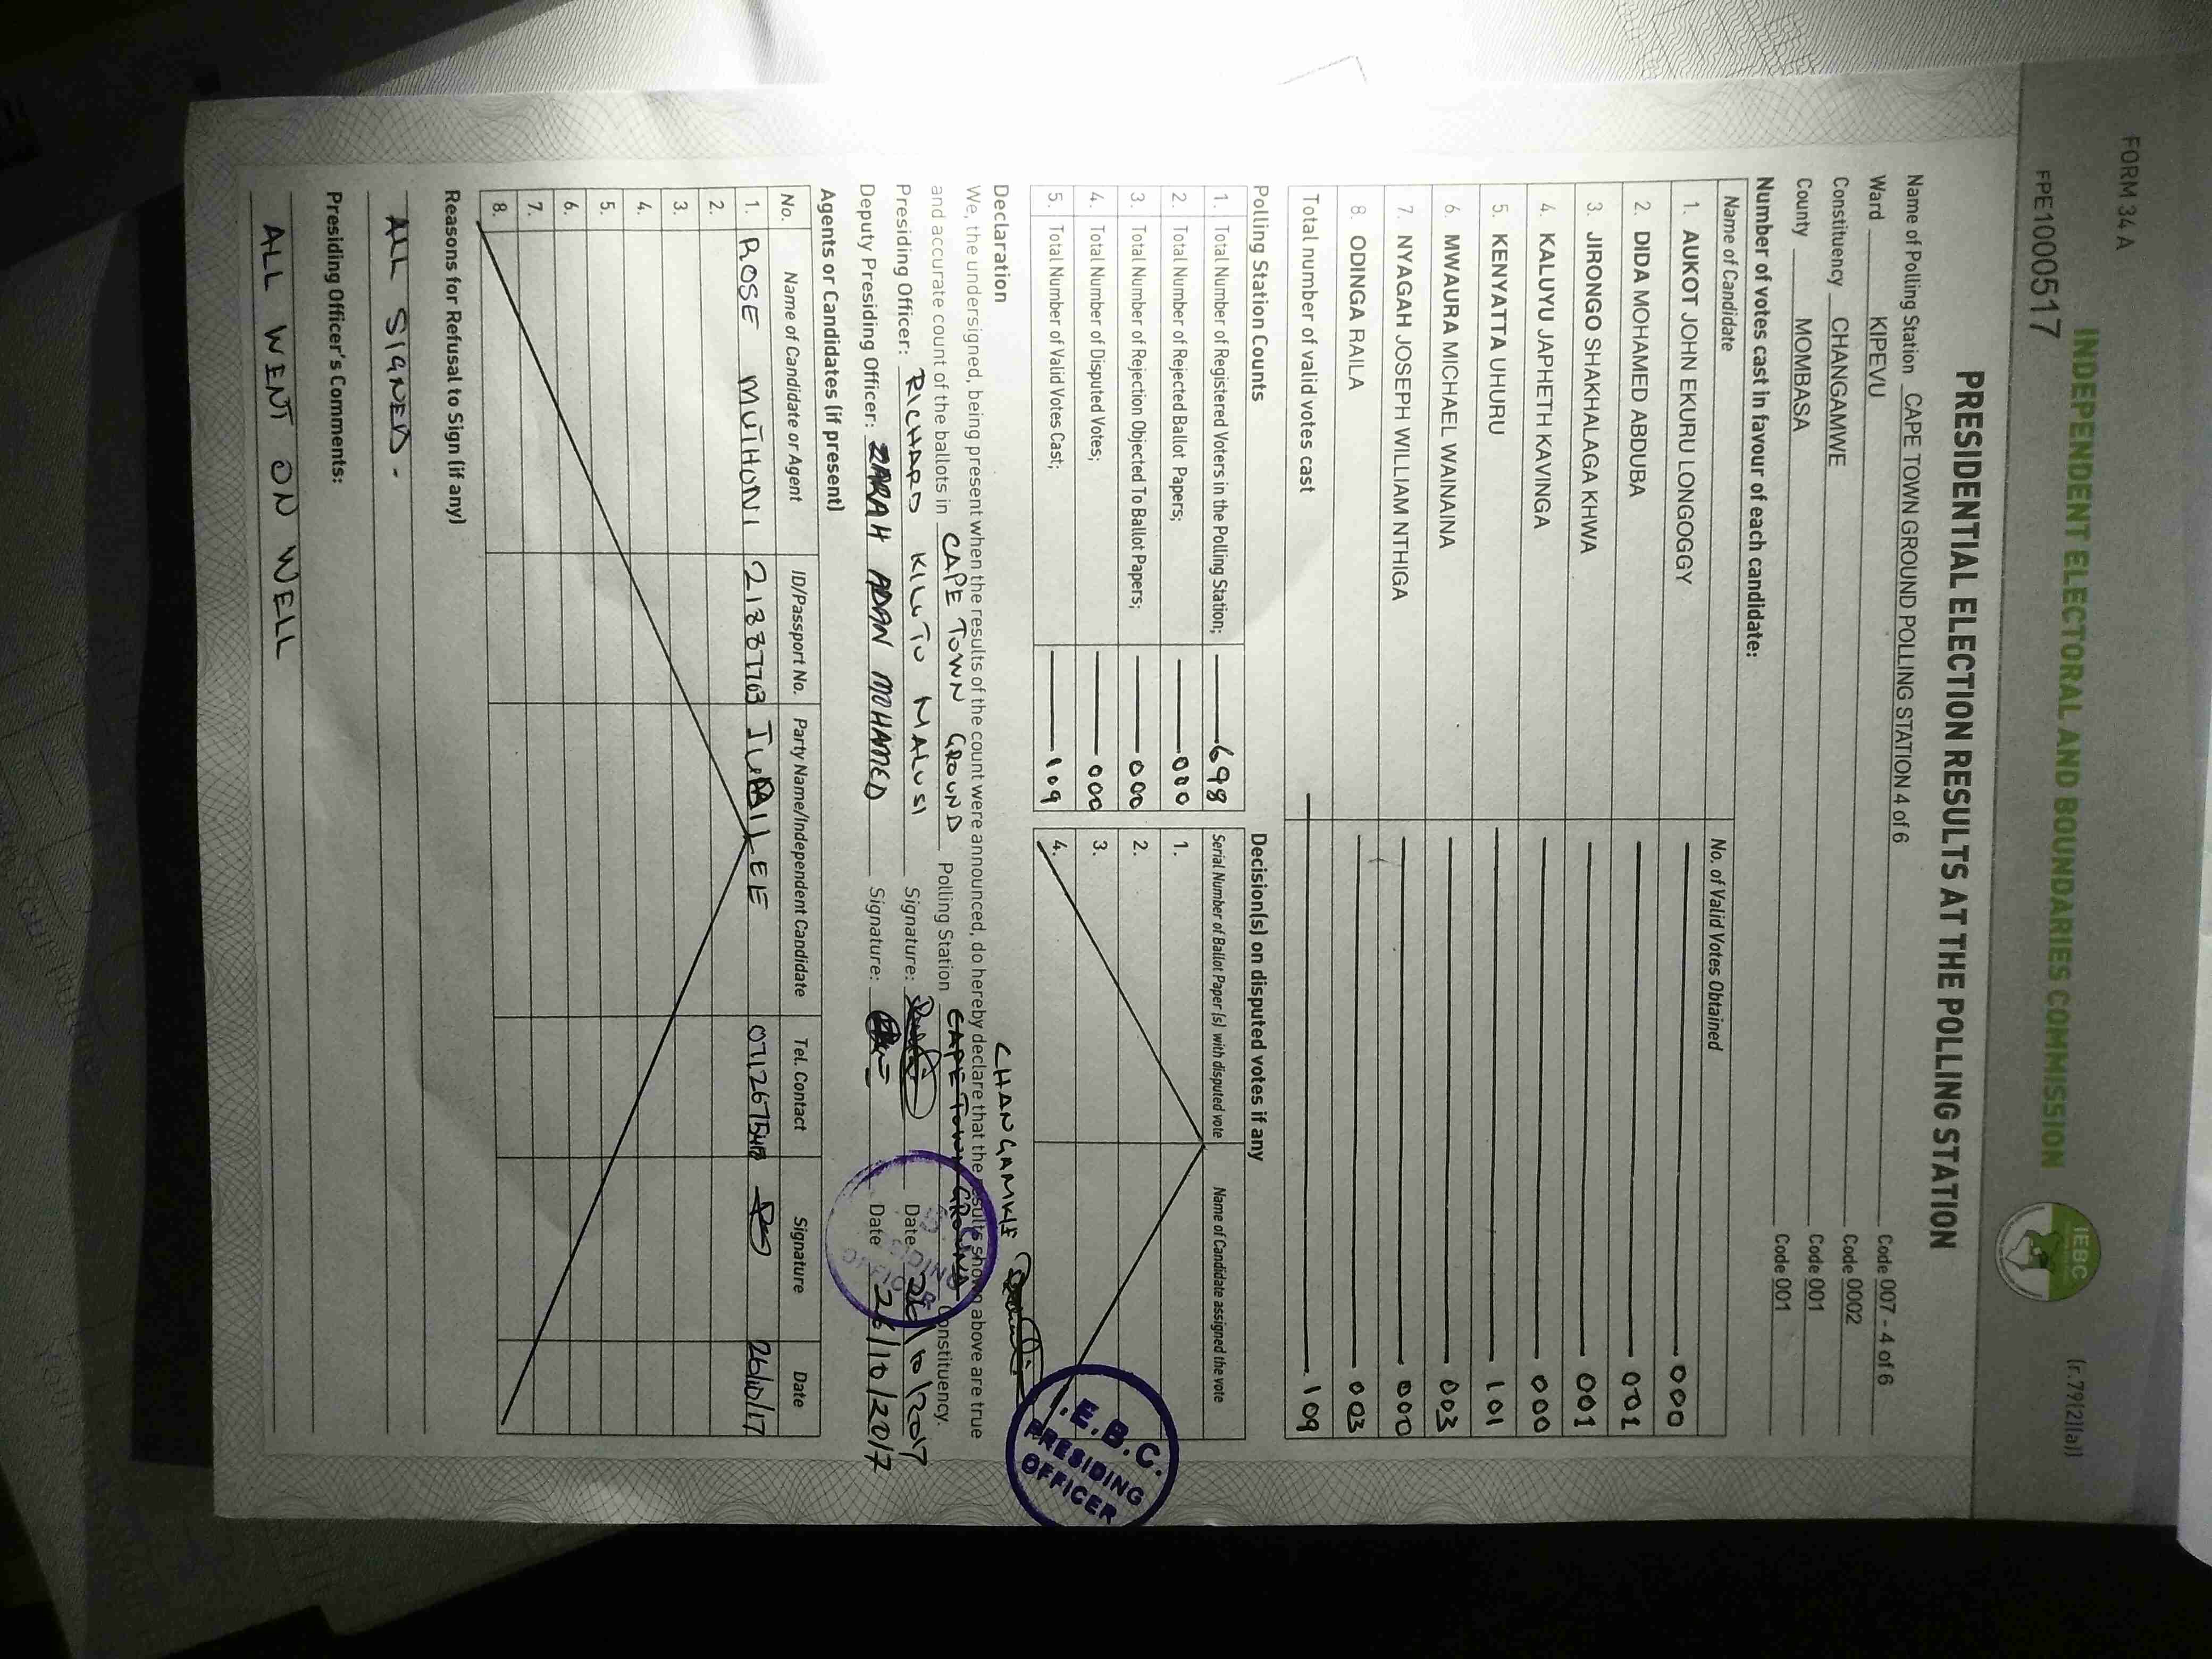 FORM 34 A
(r.79(2)(a))
INDEPENDENT ELECTORAL AND BOUNDARIES COMMISSION
IEBC
FPE1000517
PRESIDENTIAL ELECTION RESULTS AT THE POLLING STATION
Name of Polling Station CAPE TOWN GROUND POLLING STATION 4 of 6 Code 007 - 4 of 6
Ward KIPEVU Code 0002
Constituency CHANGAMWE Code 001
County MOMBASA Code 001
Number of votes cast in favour of each candidate:
Name of Candidate No. of Valid Votes Obtained
1. AUKOT JOHN EKURU LONGOGGY 000
2. DIDA MOHAMED ABDUBA 001
3. JIRONGO SHAKHALAGA KHWA 001
4. KALUYU JAPHETH KAVINGA 000
5. KENYATTA UHURU 101
6. MWAURA MICHAEL WAINAINA 003
7. NYAGAH JOSEPH WILLIAM NTHIGA 000
8. ODINGA RAILA 003
Total number of valid votes cast 109
Polling Station Counts
1. Total Number of Registered Voters in the Polling Station; 698
2. Total Number of Rejected Ballot Papers; 000
3. Total Number of Rejection Objected To Ballot Papers; 000
4. Total Number of Disputed Votes; 000
5. Total Number of Valid Votes Cast; 109
Decision(s) on disputed votes if any
Serial Number of Ballot Paper (s) with disputed vote Name of Candidate assigned the vote
1.
2.
3.
4.
I.E.B.C.
PRESIDING
OFFICER
Declaration
CHANGAMWE
We, the undersigned, being present when the results of the count were announced, do hereby declare that the results shown above are true
and accurate count of the ballots in CAPE TOWN GROUND Polling Station CAPE TOWN GROUND Constituency.
Presiding Officer: RICHARD KILUTO MALUSI Signature: Date 26/10/2017
Deputy Presiding Officer: ZARAH ADAN MOHAMED Signature: Date 26/10/2017
Agents or Candidates (if present)
No. Name of Candidate or Agent ID/Passport No. Party Name/Independent Candidate Tel. Contact Signature Date
1. ROSE MUTHONI 21887703 JUBILEE 26/10/17
2.
3.
4.
5.
6.
7.
8.
Reasons for Refusal to Sign (if any)
ALL SIGNED.
Presiding Officer's Comments:
ALL WENT ON WELL